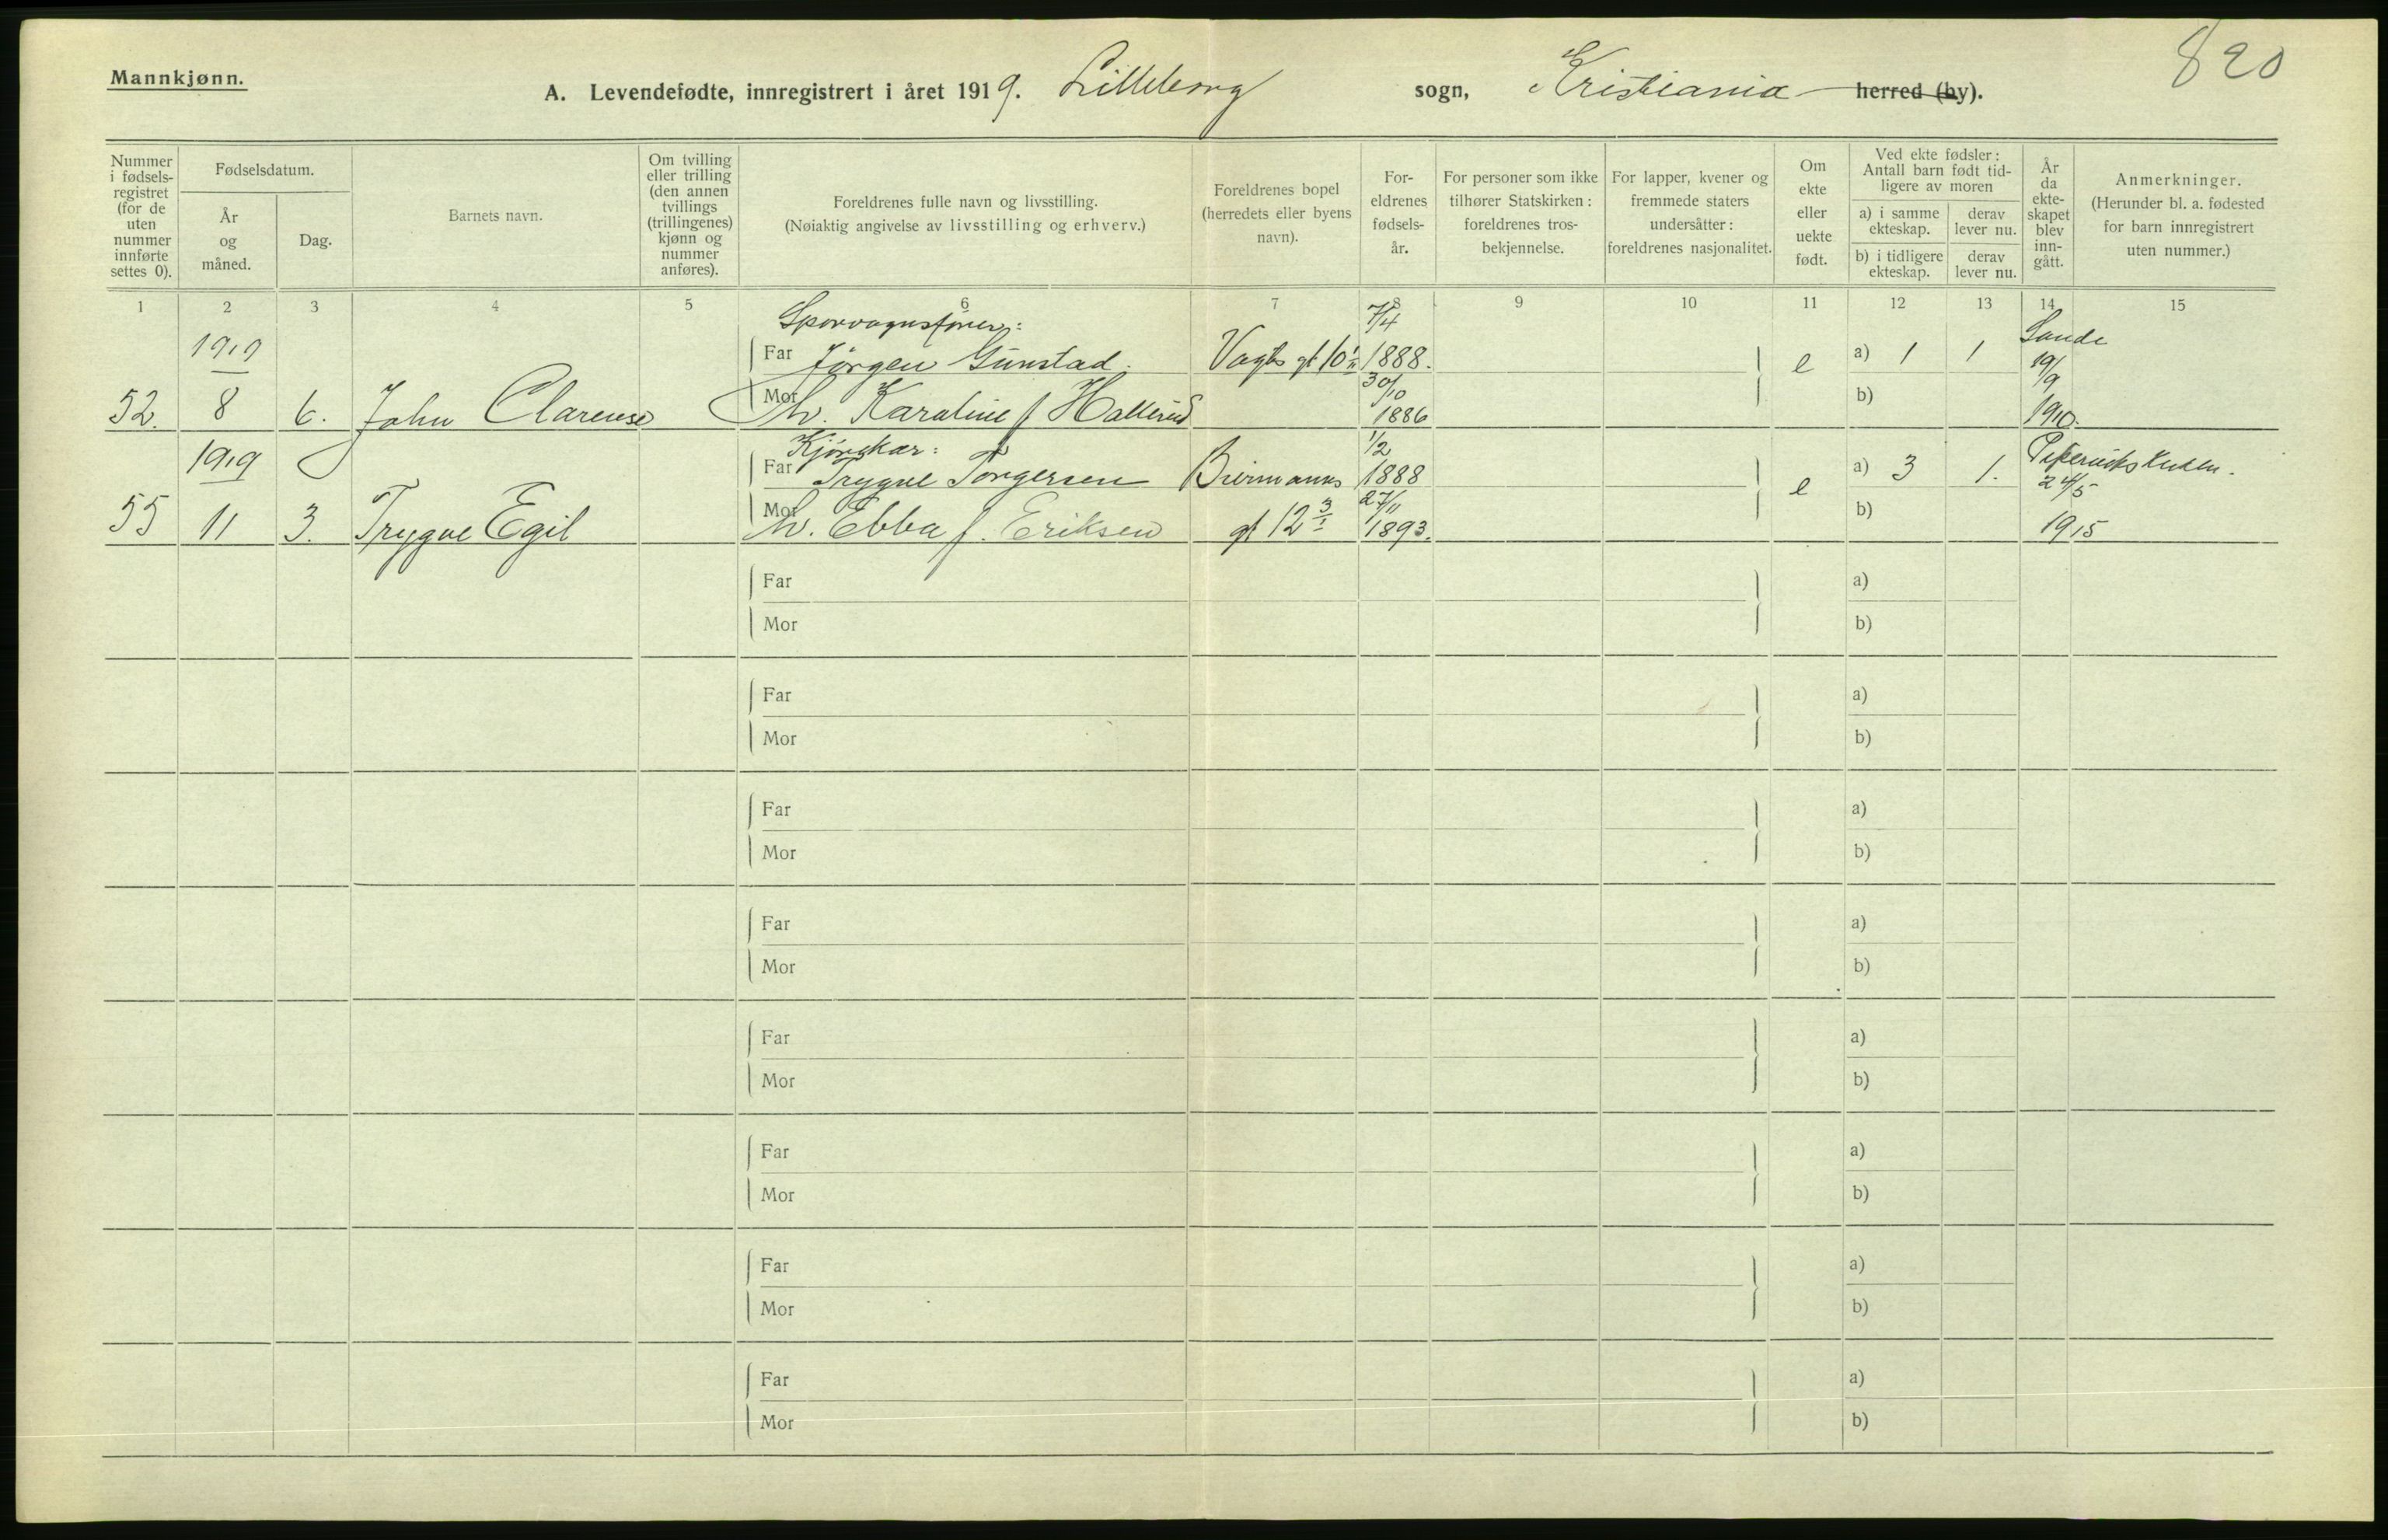 820
Mannkjønn.
A. Levendefødte, innregistrert i året 1919. Lilleborg sogn, Kristiania herred (by).
Nummer i fødsels-registret (for de uten nummer innførte settes 0).
Fødselsdatum.
År og måned.
Dag.
Barnets navn.
Om tvilling eller trilling (den annen tvillings (trillingenes) kjønn og nummer anføres).
Foreldrenes fulle navn og livsstilling.
(Nøiaktig angivelse av livsstilling og erhverv.)
Foreldrenes bopel (herredets eller byens navn).
For-eldrenes fødsels-år.
For personer som ikke tilhører Statskirken: foreldrenes tros-bekjennelse.
For lapper, kvener og fremmede staters undersåtter: foreldrenes nasjonalitet.
Om ekte eller uekte født.
Ved ekte fødsler: Antall barn født tid-ligere av moren
a) i samme ekteskap.
derav lever nu.
b) i tidligere ekteskap.
derav lever nu.
År da ekte-skapet blev inn-gått.
Anmerkninger.
(Herunder bl. a. fødested for barn innregistrert uten nummer.)
1 2 3 4 5 6 7 8 9 10 11 12 13 14 15
Sporvognsfører: 7/4 Sande
1919 Far Jörgen Gunstad. Vogts gt 10 1888. e a) 1 1 19/9
52. 8 6. John Clarense Mor h. Karoline f Hallerud 30/10 1886 b) 1910.
Kjørekar: 1/2
1919 Far Trygve Torgersen Biermanns 1888 e a) 3 1. 24/5
55 11 3. Trygve Egil Mor h. Ebba f. Eriksen gt 12 27/11 1893. b) 1915
Far a)
Mor b)
Far a)
Mor b)
Far a)
Mor b)
Far a)
Mor b)
Far a)
Mor b)
Far a)
Mor b)
Far a)
Mor b)
Far a)
Mor b)